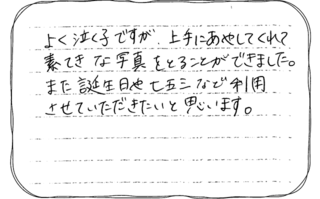 よく泣く子ですが、上手にあやしてくれて
素てきな写真をとることができました。
また誕生日や七五三など利用
させていただきたいと思います。